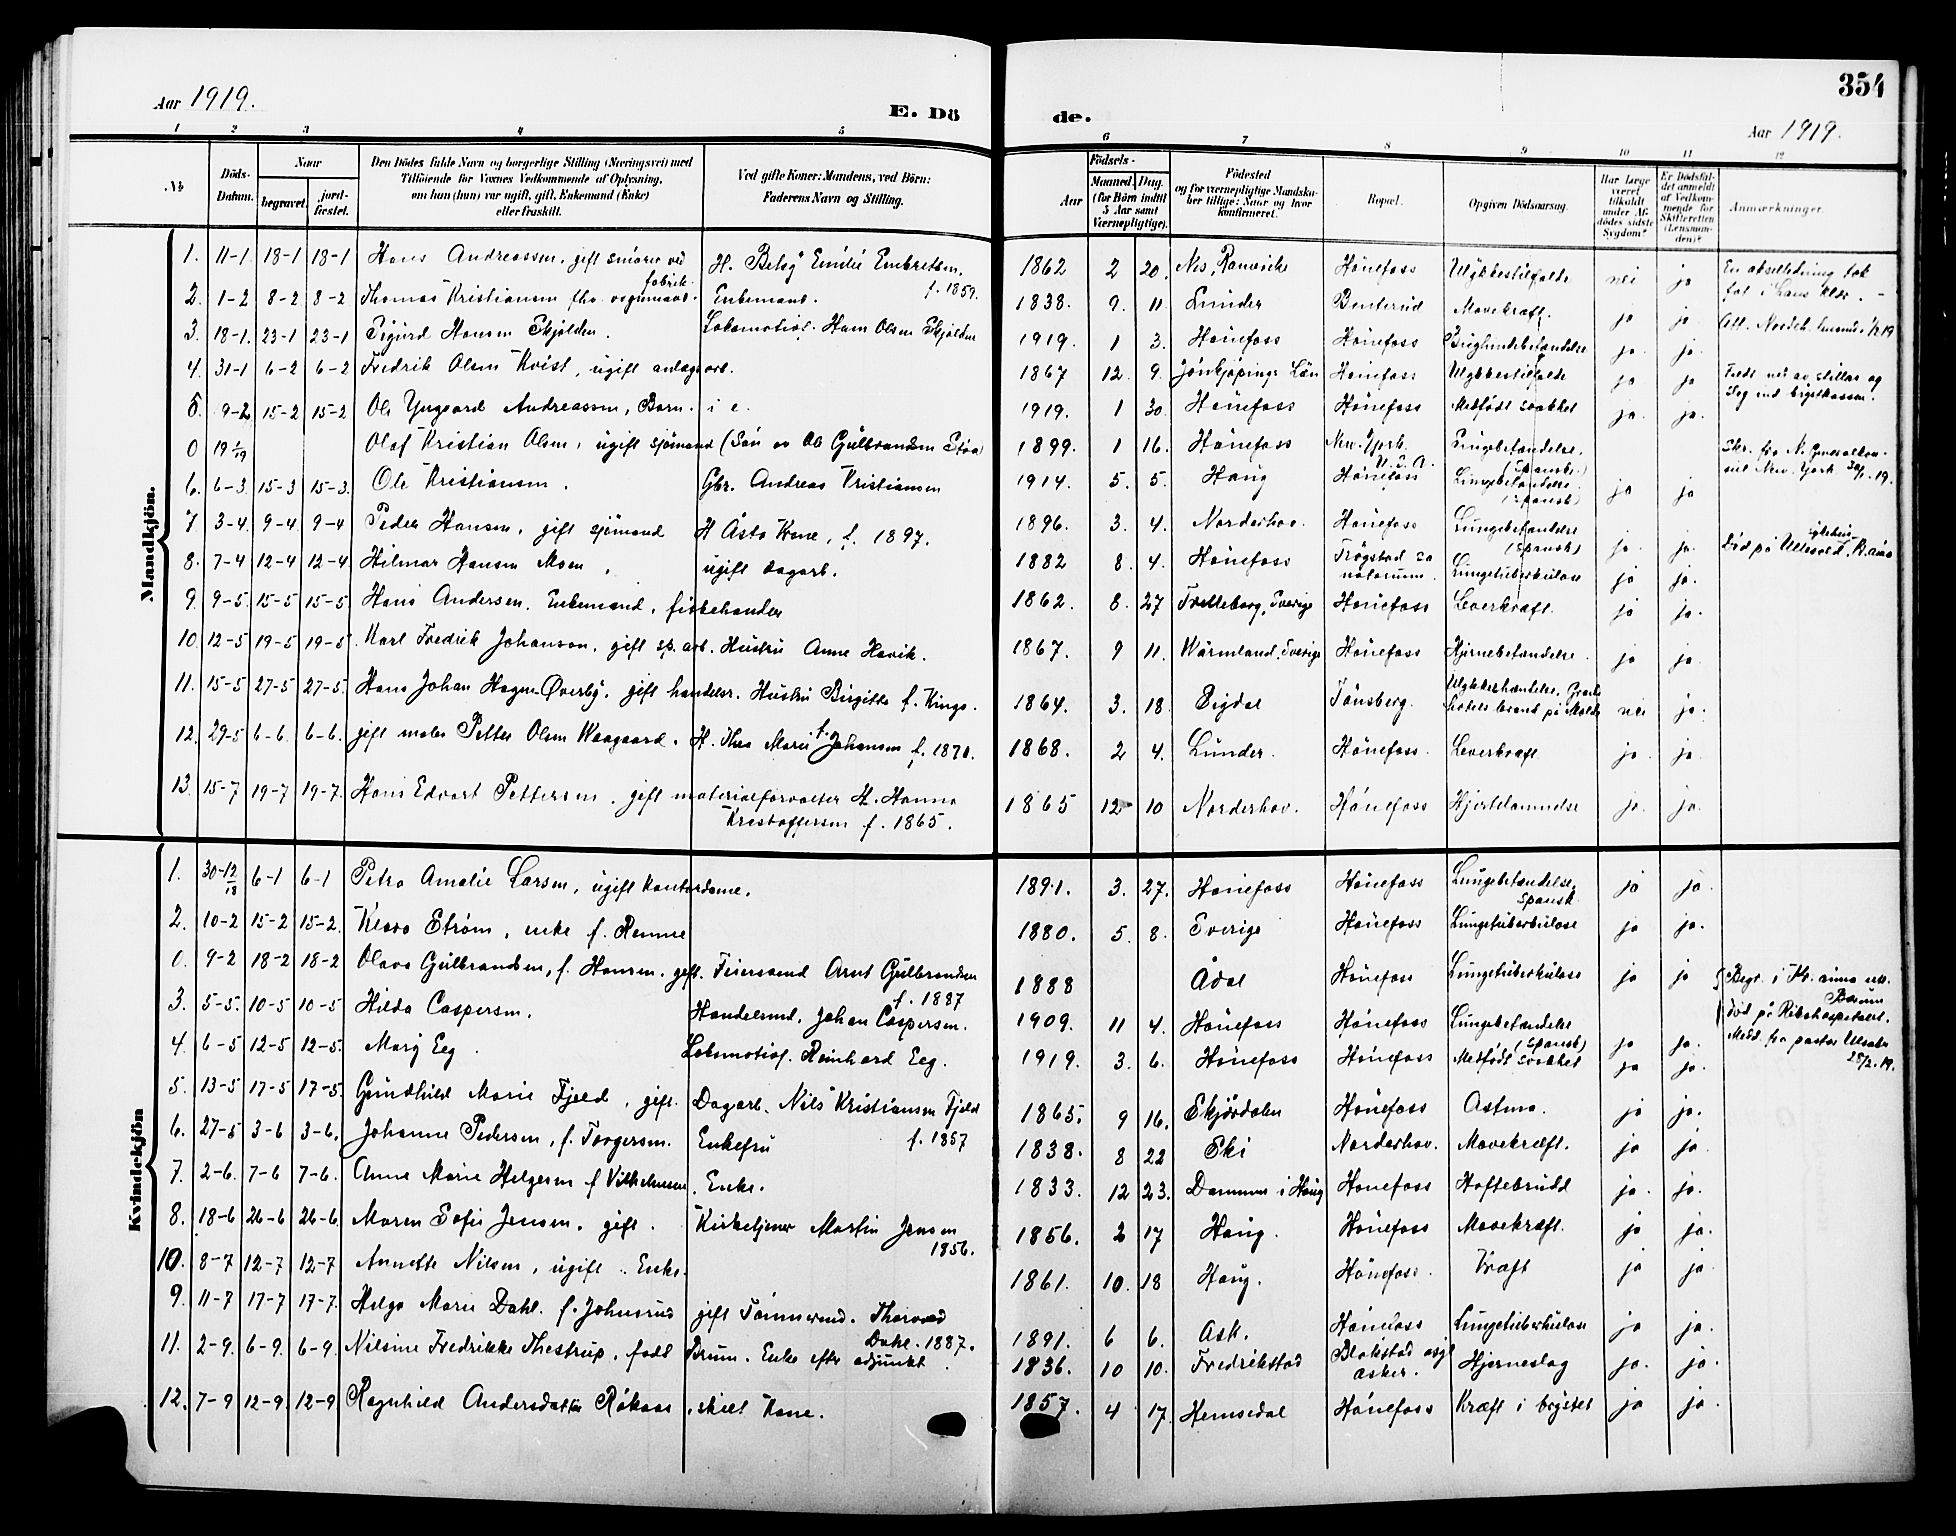 354
Aar 1919. E. Dö de. Aar 1919.
1 2 3 4 5 6 7 8 9 10 11 12
No Döds-Datum. Naar begravet. jordfæstet. Den Dödes fulde Navn og borgerlige Stilling (Næringsvei) med Tilföiende for Voxnes Vedkommende af Oplysning, om han (hun) var ugift, gift, Enkemand (Enke) eller fraskilt. Ved gifte Koner: Mandens, ved Börn: Faderens Navn og Stilling. Födsels- Aar Maaned. Dag. (for Börn indtil 5 Aar samt Værnepligtige). Födested og for værnepligtige Mandskaber tillige: Naar og hvor konfirmeret. Bopæl. Opgiven Dödsaarsag. Har Læge været tilkaldt under Afdödes sidste Sygdom? Er Dödsfaldet anmeldt af Vedkommende for Skifteretten (Lensmanden)? Anmærkninger.
Mandkjön.
1. 11-1 18-1 18-1 Hans Andreassen, gift smører ved fabrik. H. Betsy Emilie Embretsen. f. 1859. 1862 2 20. Nes, Romerike Hönefoss Ulykkestilfælde nei ja
2. 1-2 8-2 8-2 Thomas Kristiansen fhv. vognmand. Enkemand. 1838. 9. 11. Lunder Benterud Mavekræft. ja ja
3. 18-1. 23-1 23-1 Sigurd Hansen Skjolden. Lokomotivf. Hans Olsen Skjolden 1919. 1 3. Hönefoss Hönefoss Brysthindebetændelse ja. ja.
4. 31-1 6-2 6-2 Fredrik Olsen Kvist, ugift anlægsarb. 1867 12. 9. Jönkjöpings Län Hönefoss Ulykkestilfælde ja ja Faldt ned av stillas og
5. 9-2 15-2 15-2 Ole Yngvard Andreassen, Barn. i e. 1919. 1 30. Hönefoss Hönefoss Medfödt svakhet ja. ja.
0 19 1/19 Olaf Kristian Olsen, ugift sjömand (Sön av Ole Gulbrandsen Stöa) 1899. 1 16. Hönefoss New. York. U. S. A. Lungebetændelse. (Spansk.) Skr. fra N. Generalkonsul New. York 30/1. 19.
6. 6-3 15-3 15-3. Ole Kristiansen. Gbr. Andreas Kristiansen 1914. 5. 5. Haug Lungebetændelse (spansk) ja ja
7 3-4. 9-4 9-4 Peder Hansen, gift sjömand H Åsta Krone, f. 1897. 1896. 3. 4. Norderhov. Hönefoss Lungebetændelse (Spansk) ja. ja.
8. 7-4 12-4 12-4 Hilmar Hansen Moen, ugift dagarb. 1882 8. 4. Hönefoss Trøgstad sanatorium. Lungetuberkulose ja ja.
9. 9-5 15-5 15-5 Hans Andersen. Enkemand, fiskehandler 1862. 8. 27 Trelleborg, Sverige Hönefoss Leverkræft. ja ja.
10. 12-5 19-5 19-5. Karl Fredrik Johanson, gift sp. arb. Hustru Anne Havik. 1867. 9 11. Wärmland, Sverige Hönefoss Hjernebetændelse. ja ja.
11. 15-5 27-5 27-5. Hans Johan Hagne-Øverby, gift handelsr. Hustru Birgitte f. Kings. 1864. 3. 18. Sigdal Tönsberg. Ulykkeshændelse, Grand hotels brand på Molde nei ja.
12. 29-5 6-6. 6-6. gift maler Petter Olsen Waagaard. H. Thea Marie f. Johansen f. 1870. 1868. 2 4. Lunder. Hönefoss. Leverkræft ja. ja.
13. 15-7 19-7 19-7. Hans Edvart Pettersen, gift materialforvalter H. Hanna Kristoffersen f. 1865. 1865 12 10 Norderhov. Hönefoss Hjertelammelse ja. ja.
Kvindekjön
1. 30-12/18 6-1 6-1 Petra Amalie Larsen, ugift kontordame. 1891. 3. 27. Hönefoss Hönefoss Lungebetændelse. Spansk ja ja.
2. 10-2 15-2 15-2. Klara Strøm, enke f. Remme 1880. 5. 8. Sverige Hönefoss Lungetuberkulose ja ja.
0. 9-2 18-2 18-2 Olava Gulbrandsen, f. Hansen. gift. Feiersvend Arnt Gulbrandsen f. 1887 1888 Ådal Hönefoss Lungetuberkulose ja ja
3. 5-5. 10-5 10-5 Hilda Caspersen. Handelsmd. Johan Caspersen. 1909. 11 4. Hönefoss Hönefoss Lungebetændelse (Spansk) ja ja. Död på Rikshospitalet.
4. 6-5 12-5 12-5. Mary Eeg. Lokomotivf. Reinhard Eeg. 1919. 3. 6. Hönefoss Hönefoss Medfödt svakhet ja ja.
5. 13-5 17-5 17-5. Gundhild Marie Fjeld, gift. Dagarb. Nils Kristiansen Fjeld f. 1857 1865. 9 16. Skjørdalen Hönefoss Astma. ja ja.
6. 27-5 3-6 3-6. Johanne Pedersen, f. Torgersen. Enkefru 1838. 8 22 Ski Norderhov. Mavekræft. ja ja.
7. 2-6. 7-6 7-6. Anne Marie Helgesen f Vilhelmsen. Enke. 1833. 12 23. Dammen i Haug Hönefoss Hoftebrudd ja. ja.
8. 18-6 26-6 26-6. Maren Sofie Jensen, gift. Kirketjener Martin Jensen 1856. 1856. 2 17 Haug. Hönefoss Mavekræft. ja ja.
10. 8-7 12-7 12-7 Annette Nilsen, ugift. Enke. 1861. 10. 18 Haug. Hönefoss. Kræft ja ja.
9. 11-7 17-7 17-7. Helga Marie Dahl. f. Johnsrud gift Tömmermd. Thorvald Dahl. 1887. 1891. 6 6. Ask. Hönefoss Lungetuberkulose ja ja.
11. 2-9. 6-9. 6-9. Nilsine Fredrikke Thestrup, född Brun. Enke efter adjunkt. 1836. 10 10. Fredrikstad Blakstad asyl Asker. Hjerneslag ja. ja.
12. 7-9 12-9. 12-9 Ragnhild Andersdatter Råkaas, skilt kone. 1857. 4 17. Hemsedal Hönefoss Kræft i brystet ja ja.